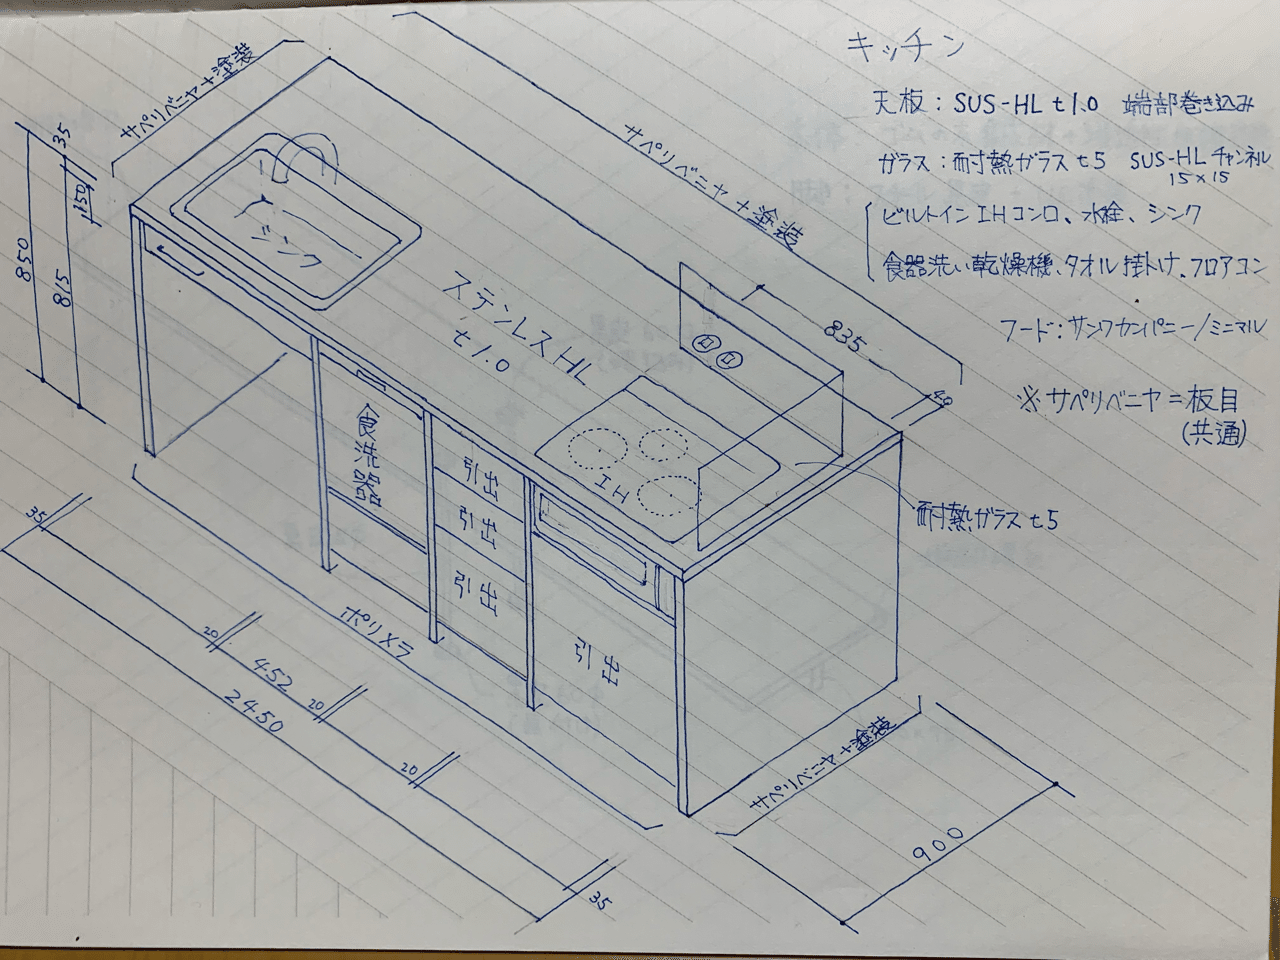 キッチン
天板：SUS-HL t1.0 端部巻き込み
ガラス：耐熱ガラス t5 SUS-HL チャンネル
15×15
ビルトインIHコンロ、水栓、シンク
食器洗い乾燥機、タオル掛け、フロアコン
フード：サンワカンパニー/ミニマル
※サペリベニヤ＝板目
(共通)
サペリベニヤ+塗装
サペリベニヤ+塗装
35
150
850
815
シンク
ステンレスHL
t1.0
835
40
IH
耐熱ガラス t5
食洗器
引出
引出
引出
引出
ポリメラ
サペリベニヤ+塗装
35
20
452
20
2450
20
35
900